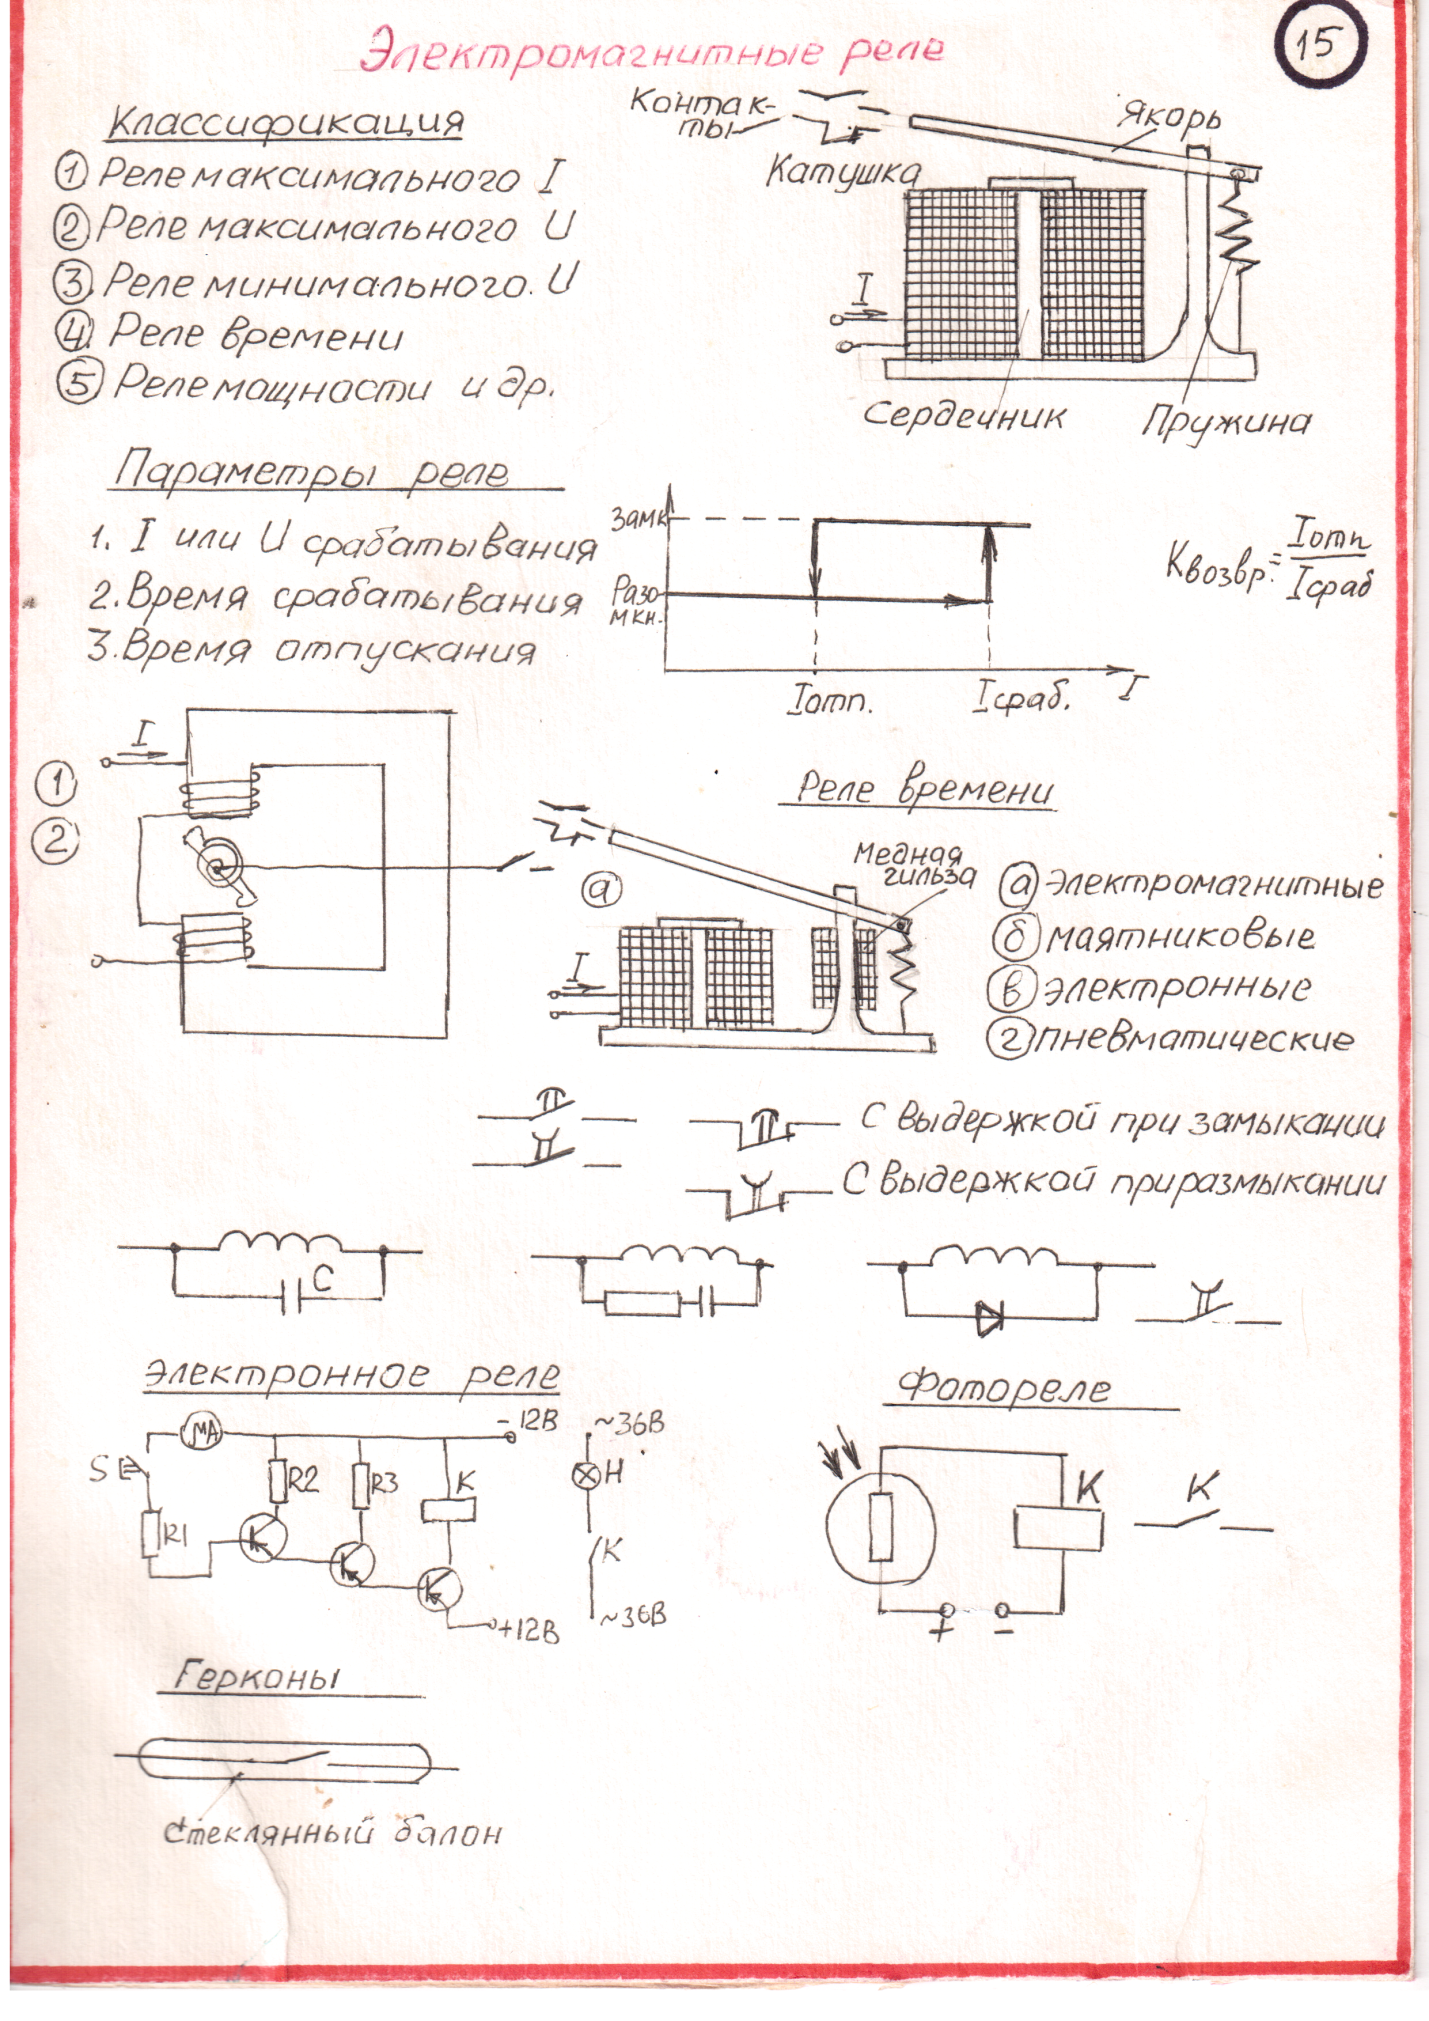 15
Электромагнитные реле
Классификация
① Реле максимального I
② Реле максимального U
③ Реле минимального. U
④ Реле времени
⑤ Реле мощности и др.
Контак-
ты
Якорь
Катушка
I
Сердечник
Пружина
Параметры реле
1. I или U срабатывания
2. Время срабатывания
3. Время отпускания
Замк
Разо-
мкн.
Iотп.
Iсраб.
I
Квозвр. = Iотп
Iсраб
I
①
②
Реле времени
Медная
гильза
ⓐ
I
ⓐ электромагнитные
ⓑ маятниковые
ⓥ электронные
ⓖ пневматические
С выдержкой при замыкании
С выдержкой при размыкании
C
Электронное реле
S
МА
R1
R2
R3
К
-12В
+12В
~36В
Н
К
~36В
Фотореле
К
К
+
-
Герконы
Стеклянный балон